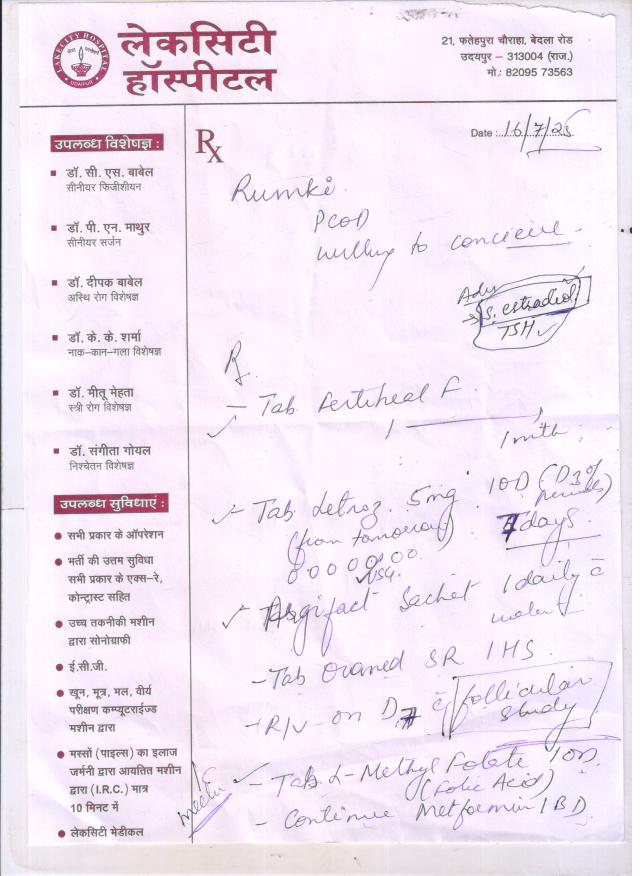 LAKECITY HOSPITAL
UDAIPUR
लेकसिटी
हॉस्पीटल
21, फतेहपुरा चौराहा, बेदला रोड
उदयपुर – 313004 (राज.)
मो.: 82095 73563
उपलब्ध विशेषज्ञ :
डॉ. सी. एस. बाबेल
सीनीयर फिजीशीयन
डॉ. पी. एन. माथुर
सीनीयर सर्जन
डॉ. दीपक बाबेल
अस्थि रोग विशेषज्ञ
डॉ. के. के. शर्मा
नाक–कान–गला विशेषज्ञ
डॉ. मीतू मेहता
स्त्री रोग विशेषज्ञ
डॉ. संगीता गोयल
निश्चेतन विशेषज्ञ
उपलब्ध सुविधाएं :
सभी प्रकार के ऑपरेशन
भर्ती की उत्तम सुविधा
सभी प्रकार के एक्स–रे,
कोन्ट्रास्ट सहित
उच्च तकनीकी मशीन
द्वारा सोनोग्राफी
ई.सी.जी.
खून, मूत्र, मल, वीर्य
परीक्षण कम्प्यूटराईज्ड
मशीन द्वारा
मस्सों (पाइल्स) का इलाज
जर्मनी द्वारा आयतित मशीन
द्वारा (I.R.C.) मात्र
10 मिनट में
लेकसिटी मेडीकल
Rx
Date :. 16/7/25
Rumki
PCOD
willing to conceive
Adv
→ S. estradiol
TSH ✓
R
– Tab Fertiheal F
1 1 mth
Tab Letroz 5mg 1OD (D3 of
periods)
(from tomorrow) 7 days
0 0 0 0 0 0 0
USG
Argifact Sachet 1 daily c̄
water
– Tab Ovamed SR 1 HS
+ R/v on D7 c̄ follicular
study
– Tab L-Methyl Folate 1OD
(Folic Acid)
– Continue Metformin 1 BD